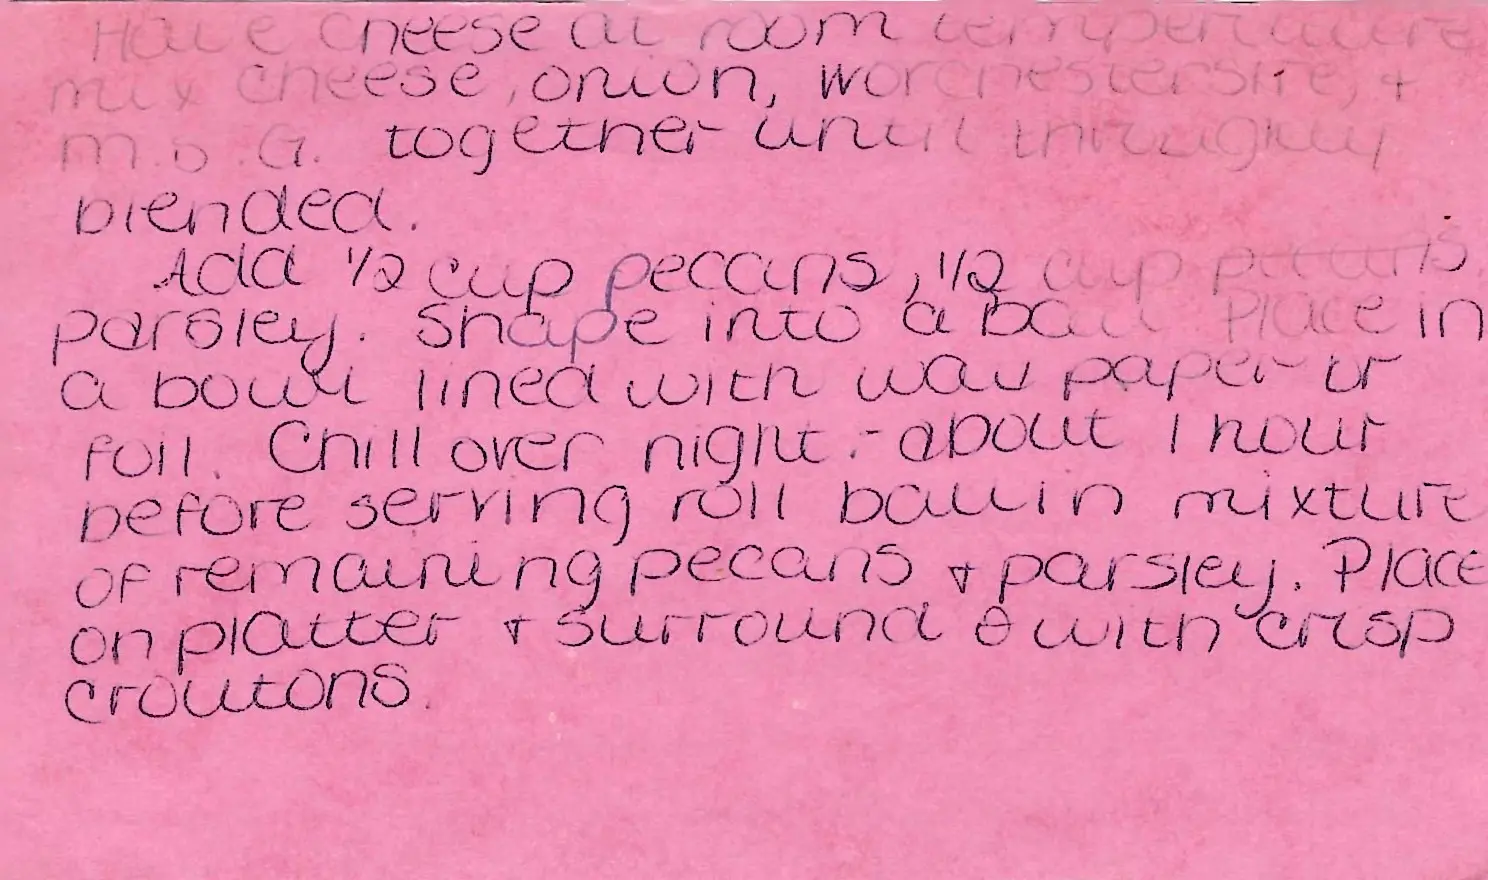 Have cheese at room temperature
mix cheese, onion, worchestersire, +
M.S.G. together until throughly
blended.
Add 1/2 cup pecans, 1/2 cup pecans
parsley. Shape into a ball Place in
a bowl lined with wax paper or
foil. Chill over night. - about 1 hour
before serving roll ball in mixture
of remaining pecans + parsley. Place
on platter + surround with crisp
croutons.